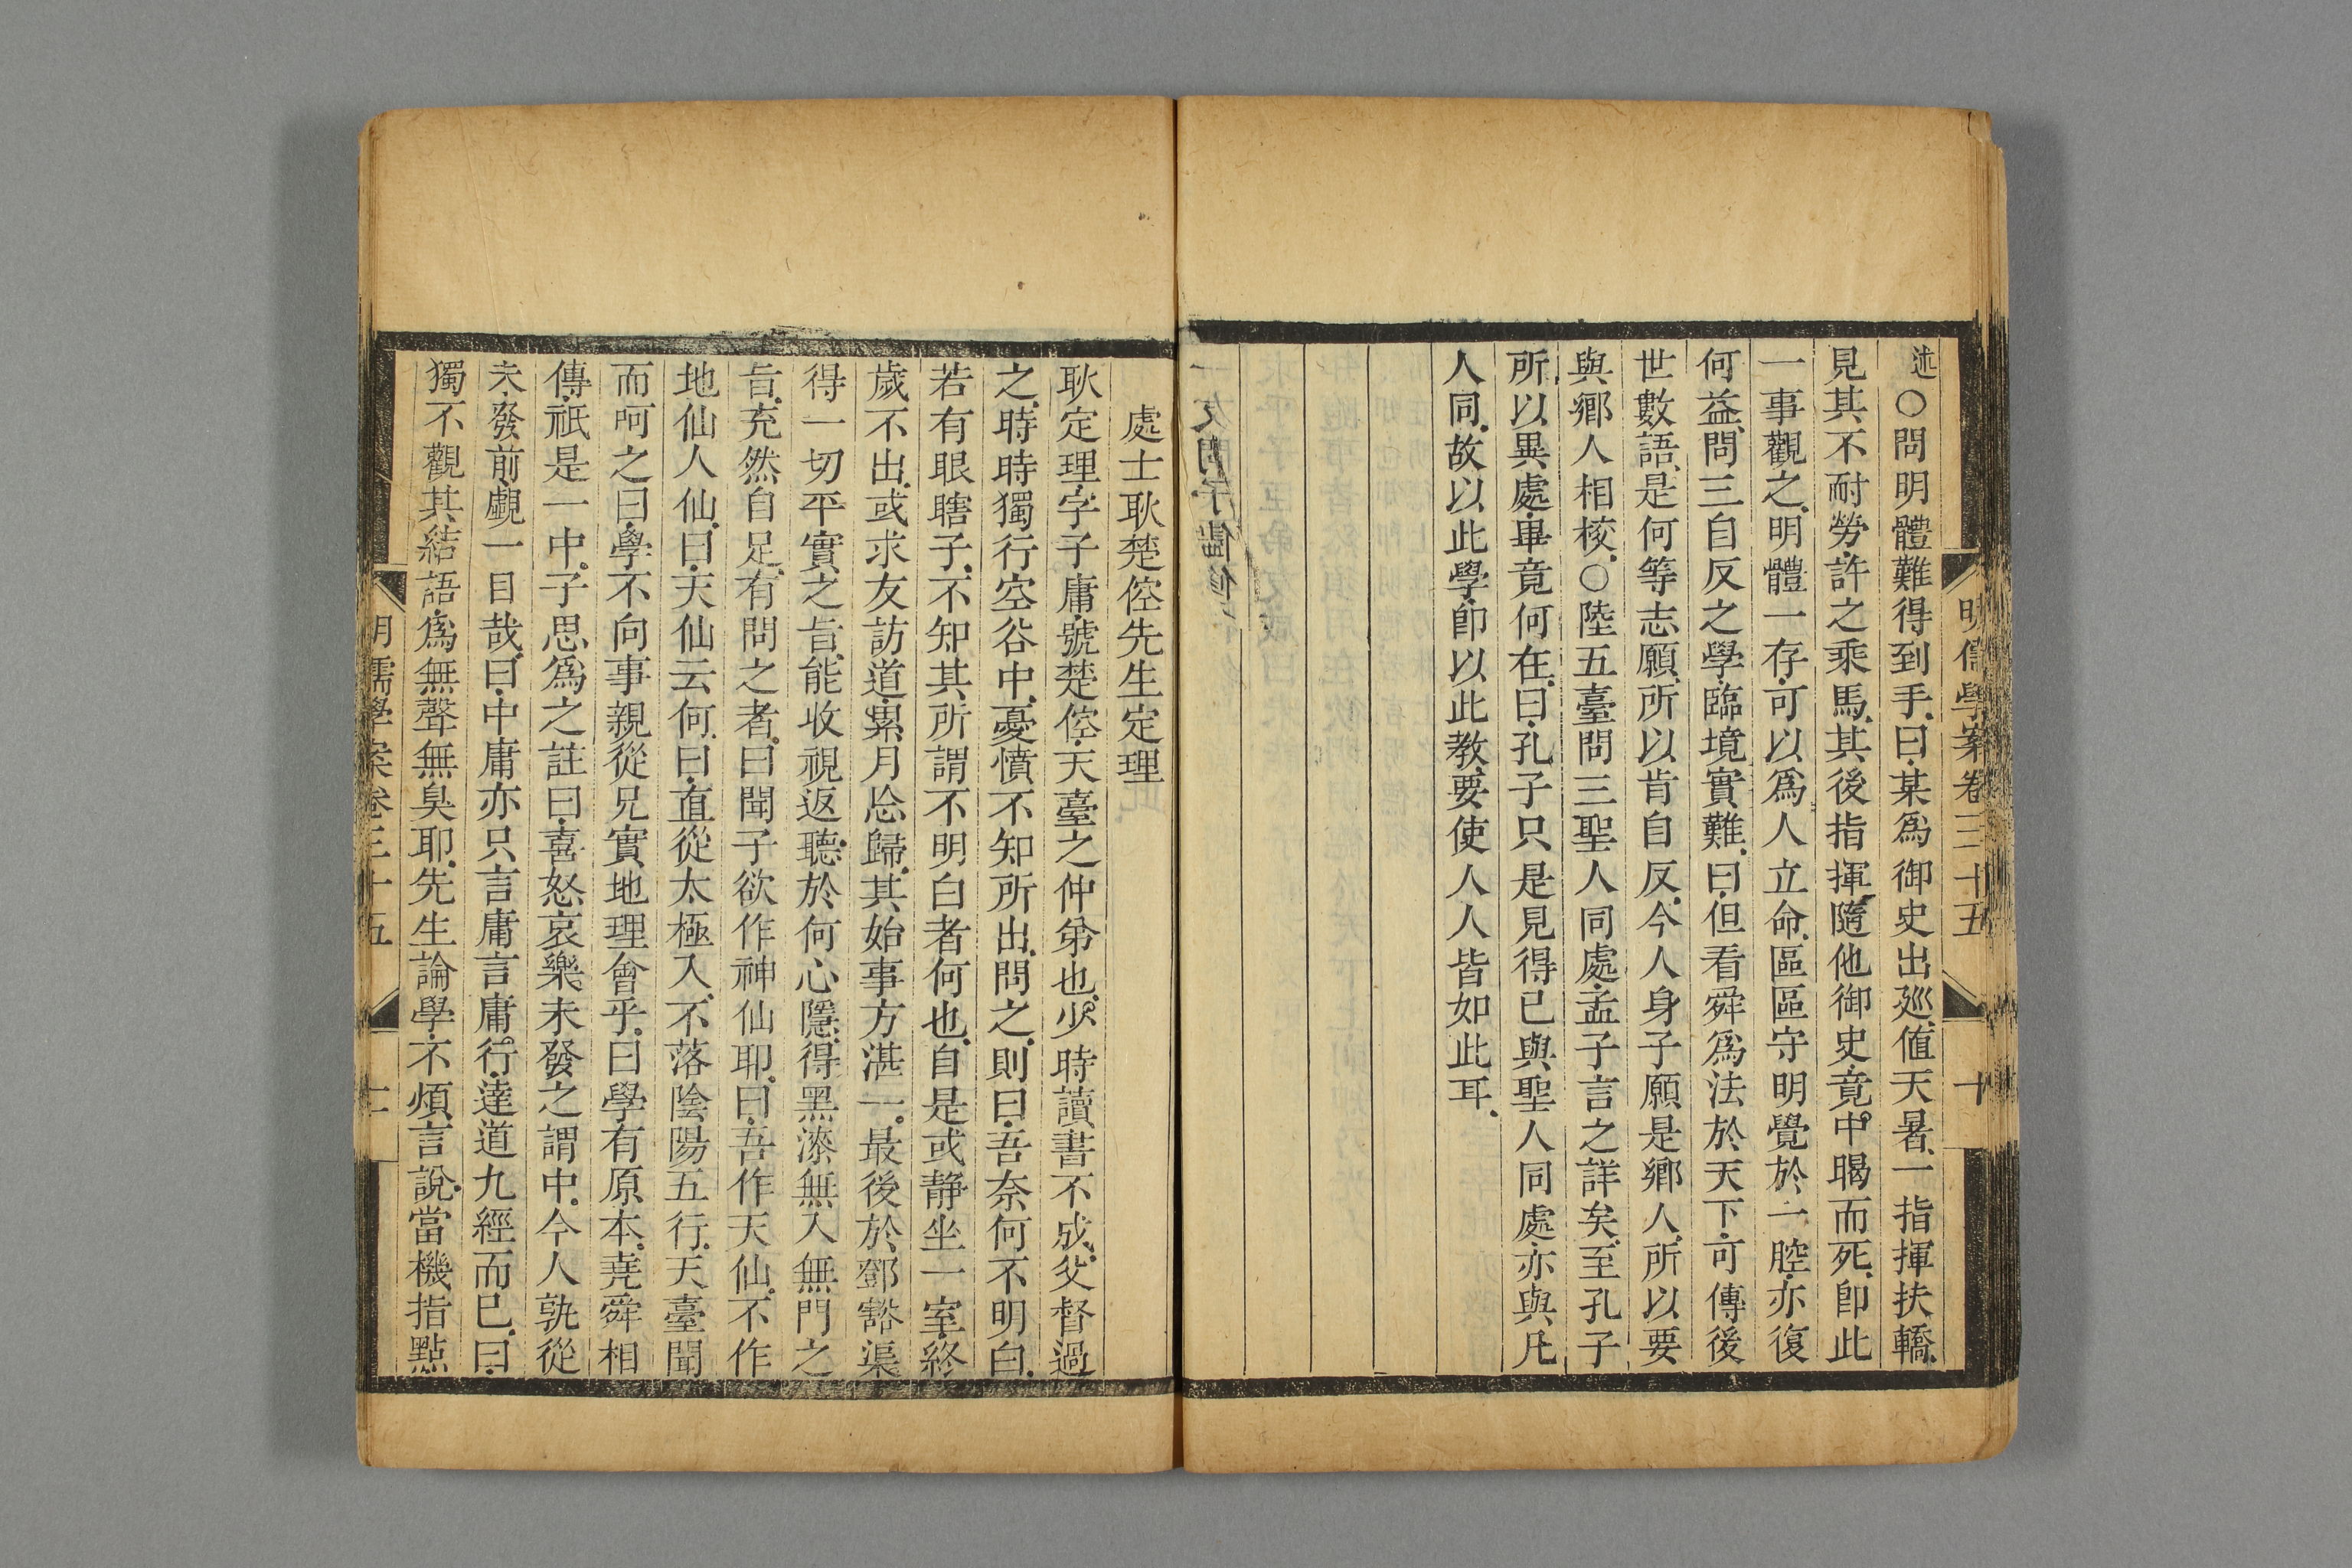 明儒學案卷三十五 十
述○問明體難得到手曰某為御史出廵值天暑一指揮扶轎
見其不耐勞許之乘馬其後指揮隨他御史竟中暍而死即此
一事觀之明體一存可以為人立命區區守明覺於一腔亦復
何益問三自反之學臨境實難曰但看舜為法於天下可傳後
世數語是何等志願所以肯自反今人身子願是鄉人所以要
與鄉人相校○陸五臺問三聖人同處孟子言之詳矣至孔子
所以異處畢竟何在曰孔子只是見得已與聖人同處亦與凡
人同故以此學即以此教要使人人皆如此耳
處士耿楚倥先生定理
耿定理字子庸號楚倥天臺之仲弟也少時讀書不成父督過
之時時獨行空谷中憂憤不知所出問之則曰吾奈何不明白
若有眼瞎子不知其所謂不明白者何也自是或靜坐一室終
歲不出或求友訪道累月忘歸其始事方湛一最後於鄧豁渠
得一切平實之旨能收視返聽於何心隱得黑漆無入無門之
旨充然自足有問之者曰聞子欲作神仙耶曰吾作天仙不作
地仙人仙曰天仙云何曰直從太極入不落陰陽五行天臺聞
而呵之曰學不向事親從兄實地理會乎曰學有原本堯舜相
傳祇是一中子思為之註曰喜怒哀樂未發之謂中今人孰從
未發前覷一目哉曰中庸亦只言庸言庸行達道九經而已曰
獨不觀其結語為無聲無臭耶先生論學不煩言說當機指點
明儒學案卷三十五